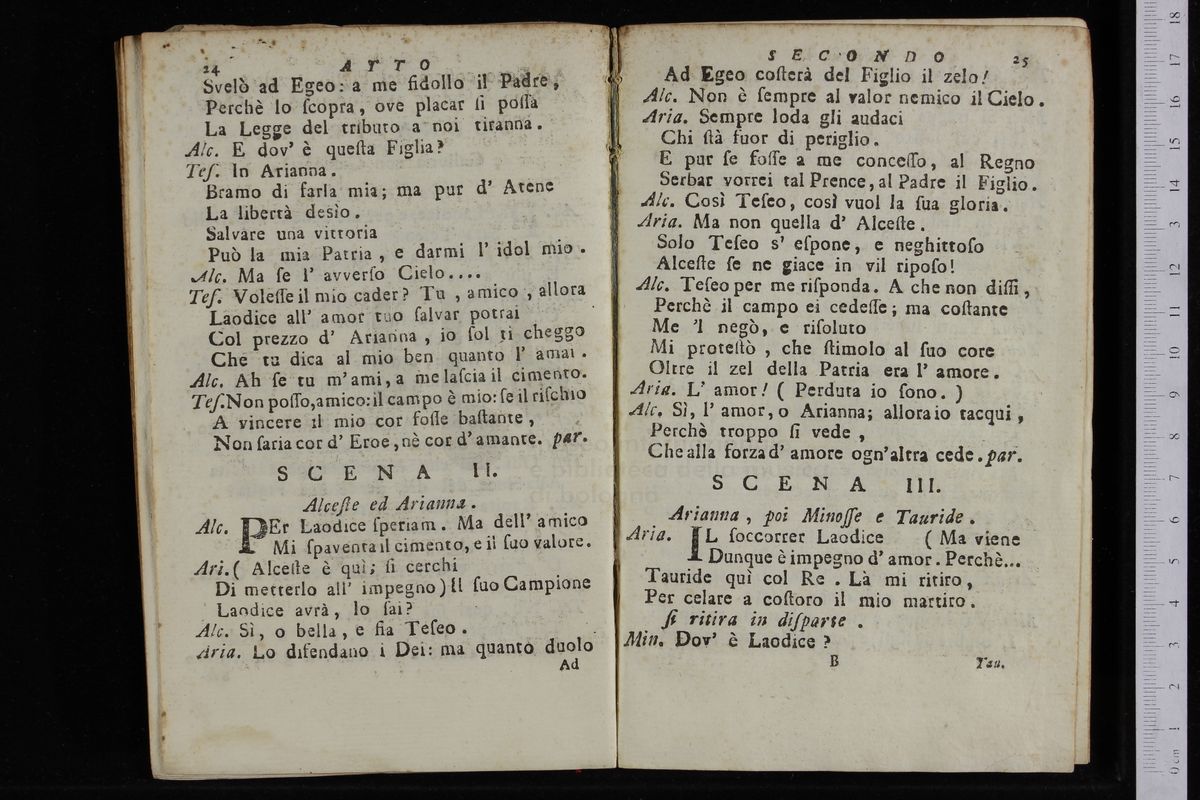 24 ATTO
Svelò ad Egeo: a me fidollo il Padre,
Perchè lo ſcopra, ove placar ſi poſſa
La Legge del tributo a noi tiranna.
Alc. E dov' è queſta Figlia?
Teſ. In Arianna.
Bramo di farla mia; ma pur d' Atene
La libertà desìo.
Salvare una vittoria
Può la mia Patria, e darmi l' idol mio.
Alc. Ma ſe l' avverſo Cielo....
Teſ. Voleſſe il mio cader? Tu, amico, allora
Laodice all' amor tuo ſalvar potrai
Col prezzo d' Arianna, io ſol ti cheggo
Che tu dica al mio ben quanto l' amai.
Alc. Ah ſe tu m'ami, a me laſcia il cimento.
Teſ. Non poſſo, amico: il campo è mio: ſe il riſchio
A vincere il mio cor foſſe baſtante,
Non ſaria cor d' Eroe, nè cor d'amante. par.
SCENA II.
Alceſte ed Arianna.
Alc. PEr Laodice ſperiam. Ma dell' amico
Mi ſpaventa il cimento, e il ſuo valore.
Ari. ( Alceſte è quì; ſi cerchi
Di metterlo all' impegno) Il ſuo Campione
Laodice avrà, lo ſai?
Alc. Sì, o bella, e ſia Teſeo.
Aria. Lo difendano i Dei: ma quanto duolo
Ad
SECONDO 25
Ad Egeo coſterà del Figlio il zelo!
Alc. Non è ſempre al valor nemico il Cielo.
Aria. Sempre loda gli audaci
Chi ſtà fuor di periglio.
E pur ſe foſſe a me conceſſo, al Regno
Serbar vorrei tal Prence, al Padre il Figlio.
Alc. Così Teſeo, così vuol la ſua gloria.
Aria. Ma non quella d' Alceſte.
Solo Teſeo s' eſpone, e neghittoſo
Alceſte ſe ne giace in vil ripoſo!
Alc. Teſeo per me riſponda. A che non diſſi,
Perchè il campo ei cedeſſe; ma coſtante
Me 'l negò, e riſoluto
Mi proteſtò, che ſtimolo al ſuo core
Oltre il zel della Patria era l' amore.
Aria. L' amor! ( Perduta io ſono. )
Alc. Sì, l' amor, o Arianna; allora io tacqui,
Perchè troppo ſi vede,
Che alla forza d' amore ogn'altra cede. par.
SCENA III.
Arianna, poi Minoſſe e Tauride.
Aria. IL ſoccorrer Laodice ( Ma viene
Dunque è impegno d' amor. Perchè...
Tauride quì col Re. Là mi ritiro,
Per celare a coſtoro il mio martiro.
ſi ritira in diſparte.
Min. Dov' è Laodice?
B Tau.